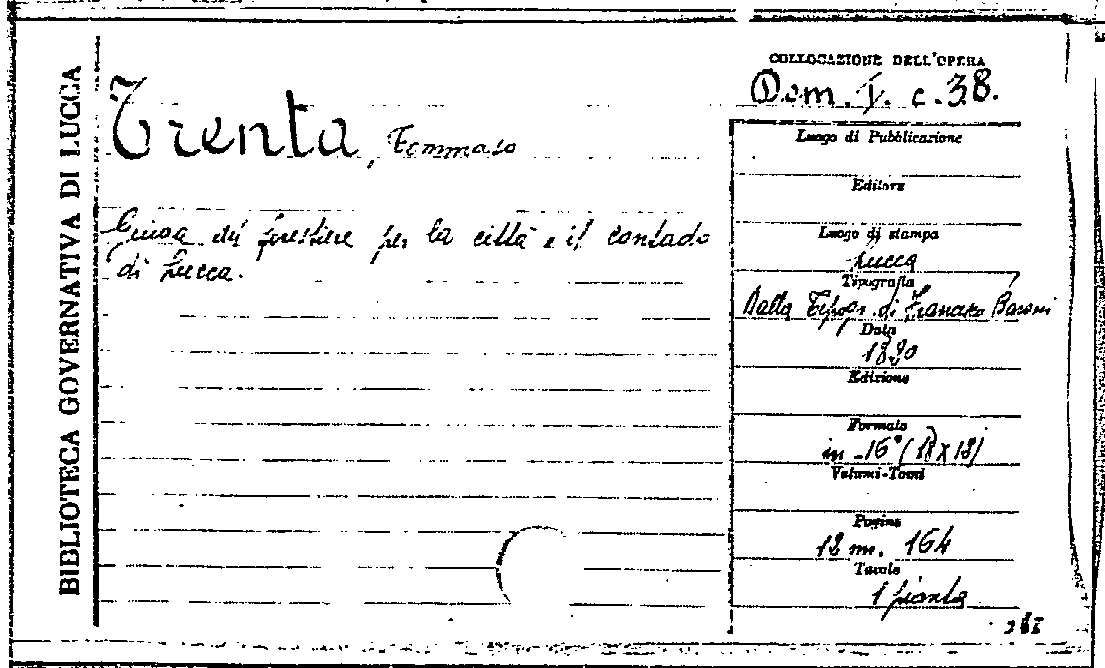 BIBLIOTECA GOVERNATIVA DI LUCCA
COLLOCAZIONE DELL'OPERA
Dom. I. c. 38.
Trenta, Tommaso
Guida del forestiere per la città e il contado
di Lucca.
Luogo di Pubblicazione
Editore
Luogo di stampa
Lucca
Tipografia
Dalla Tipogr. di Francesco Baroni
Data
1820
Edizione
Formato
in-16° (18 x
Volumi-Tomi
Pagine
12 nn. 164
Tavole
1 pianta